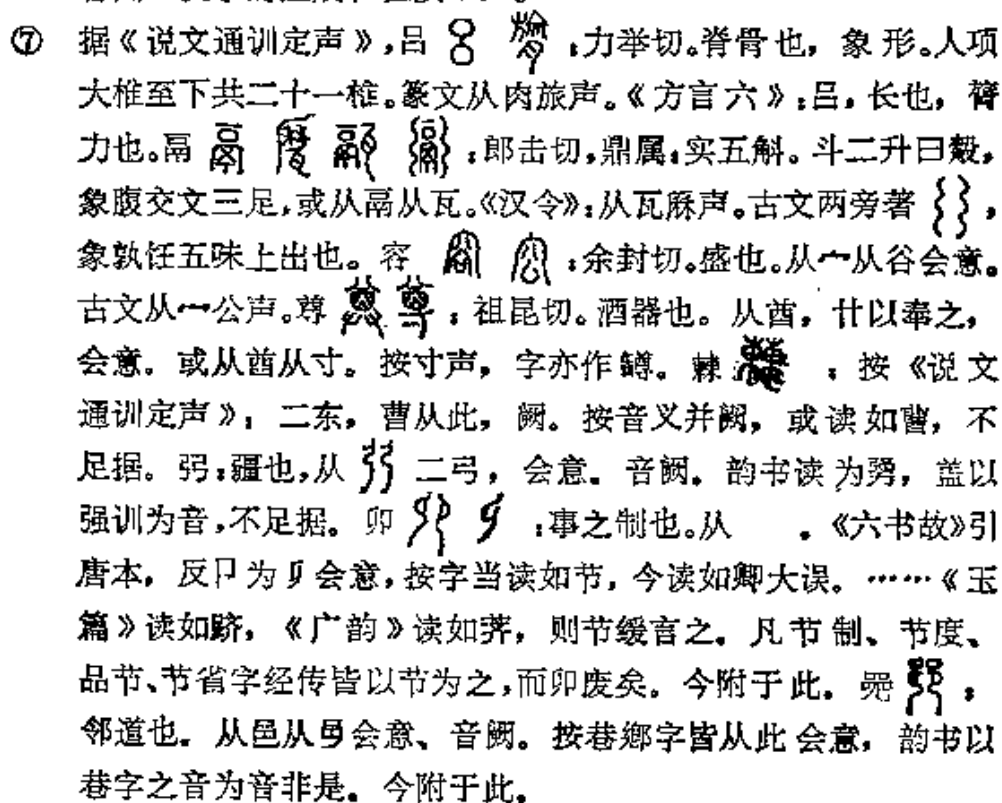 ⑦ 据《说文通训定声》,吕 :力举切。脊骨也,象形。人项
大椎至下共二十一椎。篆文从肉旅声。《方言六》:吕,长也,膂
力也。鬲 :郎击切,鼎属;实五斛。斗二升曰觳,
象腹交文三足,或从鬲从瓦。《汉令》:从瓦厤声。古文两旁著 ,
象孰饪五味上出也。容 :余封切。盛也。从宀从谷会意。
古文从宀公声。尊 :祖昆切。酒器也。从酋,廾以奉之,
会意。或从酋从寸。按寸声,字亦作罇。㯥 :按《说文
通训定声》:二东,曹从此,阙。按音义并阙,或读如曹,不
足据。弜:疆也,从 二弓,会意。音阙。韵书读为弶,盖以
强训为音,不足据。卯 :事之制也。从 。《六书故》引
唐本,反卩为 会意,按字当读如节,今读如卿大误。……《玉
篇》读如跻,《广韵》读如荠,则节缓言之。凡节制、节度、
品节、节省字经传皆以节为之,而卯废矣。今附于此。 :
邻道也。从邑从 会意、音阙。按巷鄉字皆从此会意,韵书以
巷字之音为音非是。今附于此。